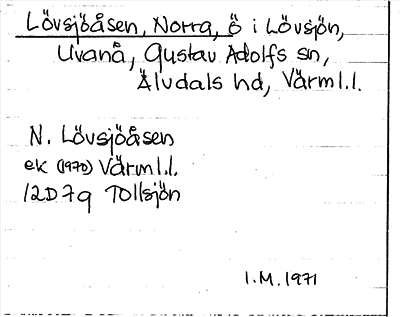 Lövsjöåsen, Norra, ö i Lövsjön,
Uvanå, Gustav Adolfs sn,
Älvdals hd, Värml.l.
N. Lövsjöåsen
ek (1970) Värml.l.
12D7g Tollsjön
I.M. 1971